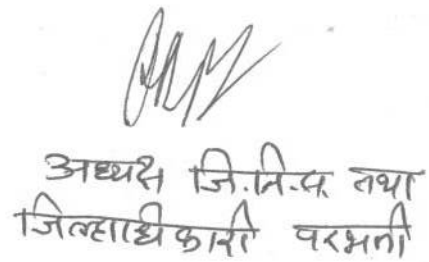 अध्यक्ष जि.नि.स. तथा
जिल्हाधिकारी परभणी